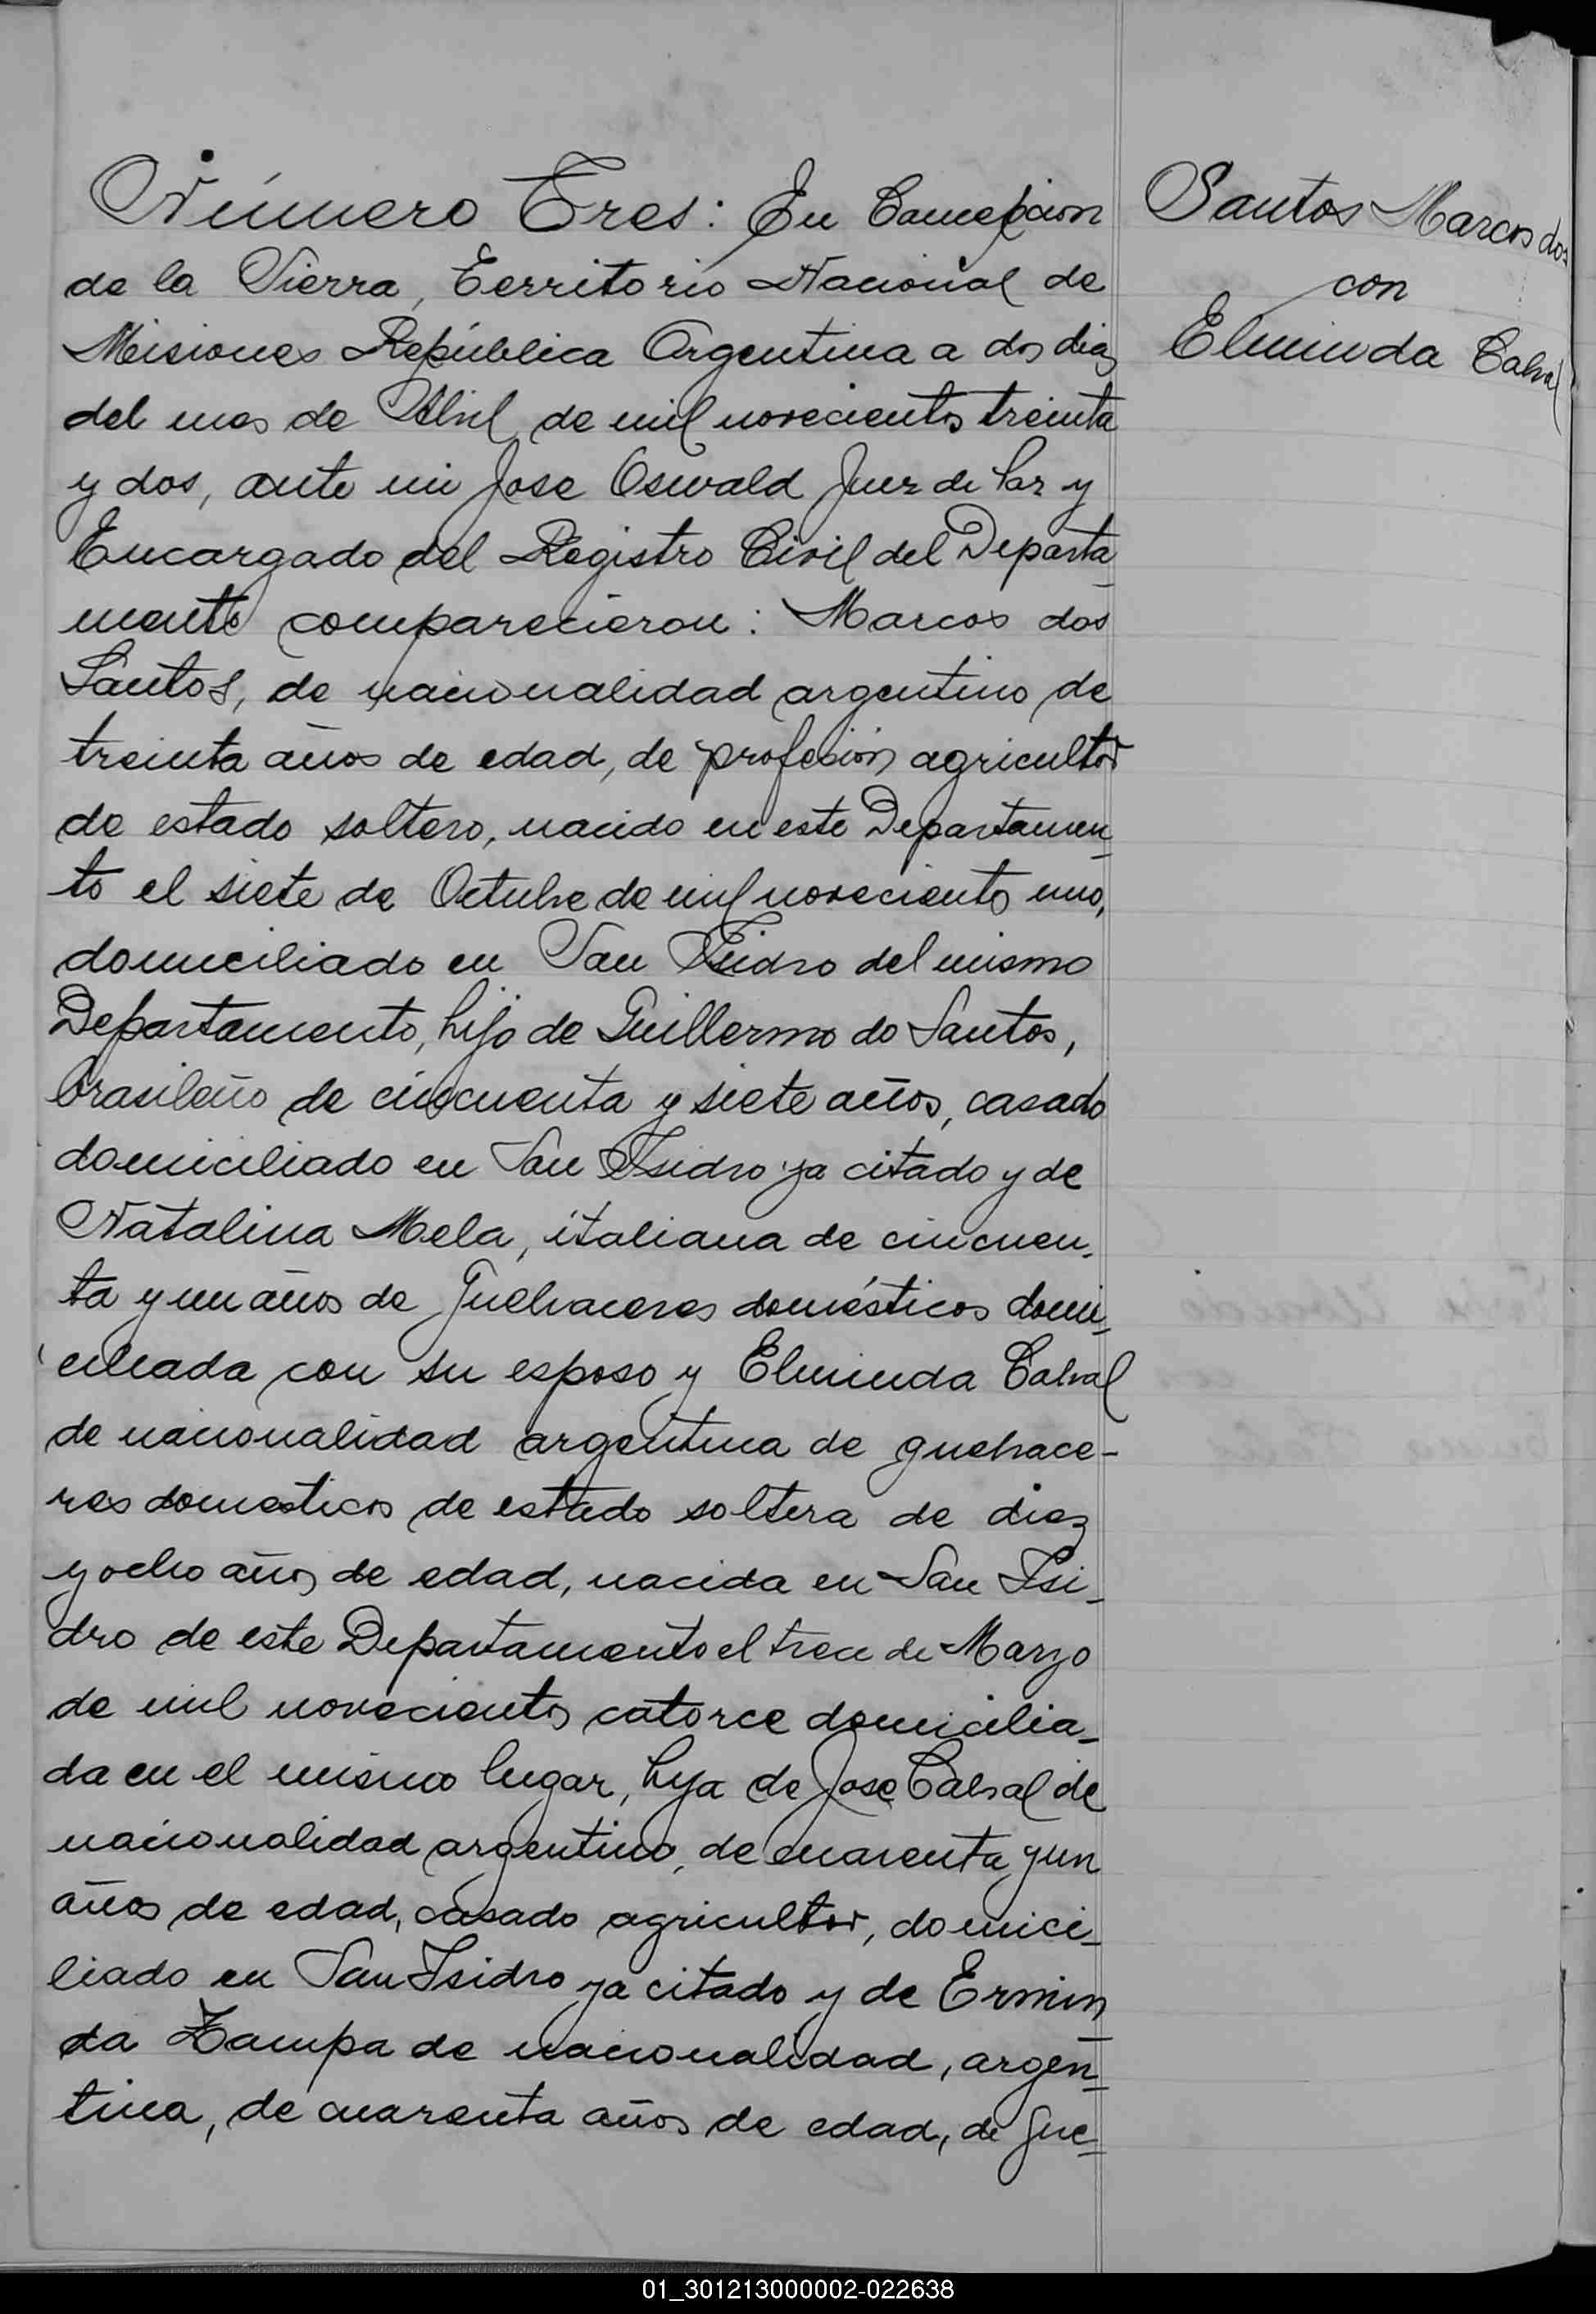 Número Tres: En Concepcion
de la Sierra, Territorio Nacional de
Misiones República Argentina a dos dias
del mes de Abril de mil novecientos treinta
y dos, ante mi Jose Oswald Juez de Paz y
Encargado del Registro Civil del Departa
mento comparecieron: Marcos dos
Santos, de nacionalidad argentino de
treinta años de edad, de profesión agricultor
de estado soltero, nacido en este Departamen-
to el siete de Octubre de mil novecientos uno,
domiciliado en San Isidro del mismo
Departamento, hijo de Guillermo do Santos,
brasileño de cincuenta y siete años, casado
domiciliado en San Isidro ya citado y de
Natalina Mela, italiana de cincuen-
ta y un años de quehaceres domésticos domi-
ciliada con su esposo y Elminda Cabral
de nacionalidad argentina de quehace-
res domesticos de estado soltera de diez
y ocho años de edad, nacida en San Isi-
dro de este Departamento el trece de Marzo
de mil novecientos catorce domicilia-
da en el mismo lugar, hija de Jose Cabral de
nacionalidad argentino, de cuarenta y un
años de edad, casado agricultor, domici-
liado en San Isidro ya citado y de Ermin
da Zampa de nacionalidad, argen-
tina, de cuarenta años de edad, de que-
Santos Marcos dos
con
Elminda Cabral
01_301213000002-022638